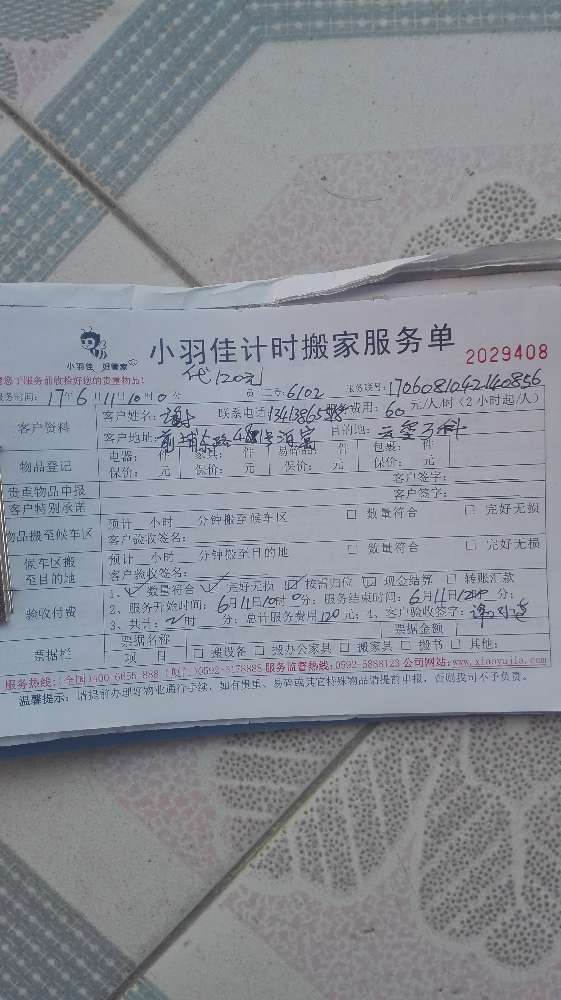 小羽佳 好管家
小羽佳计时搬家服务单
2029408
您了服务前收拾好您的贵重物品!
代120元
服务时间: 17年6月11日10时0分 6102 服务联号: 1706081042140856
客户资料
客户姓名: 谢 联系电话 服务费用: 60元/人/时 (2小时起/人)
客户地址: 目的地:
物品登记
电器: 件 家具: 件 易碎品: 件 包裹: 件
保价: 元 保价: 元 保价: 元 保价: 元
贵重物品申报 客户签字:
客户特别承诺 客户签字:
物品搬至候车区
预计 小时 分钟搬至候车区 □ 数量符合 □ 完好无损
客户验收签名:
候车区搬至目的地
预计 小时 分钟搬至目的地 □ 数量符合 □ 完好无损
客户验收签名:
验收付费
1、数量符合 完好无损 按需归位 现金结算 □ 转账汇款
2、服务开始时间: 6月11日10时0分; 服务结束时间: 6月11日12时 分;
3、共计: 2时 分; 总计服务费用120元; 4、客户验收签字:
票据栏
票据名称 票据金额
项 目 □ 搬设备 □ 搬办公家具 □ 搬家具 □ 搬书 □ 其他:
服务热线: (全国)400-6656-888 0592-5178885 服务监督热线: 0592-5888123 公司网站: www.xiaoyujia.com
温馨提示: 请提前办理好物业通行手续, 如有贵重、易碎或其它特殊物品请提前申报, 否则我司不予负责。